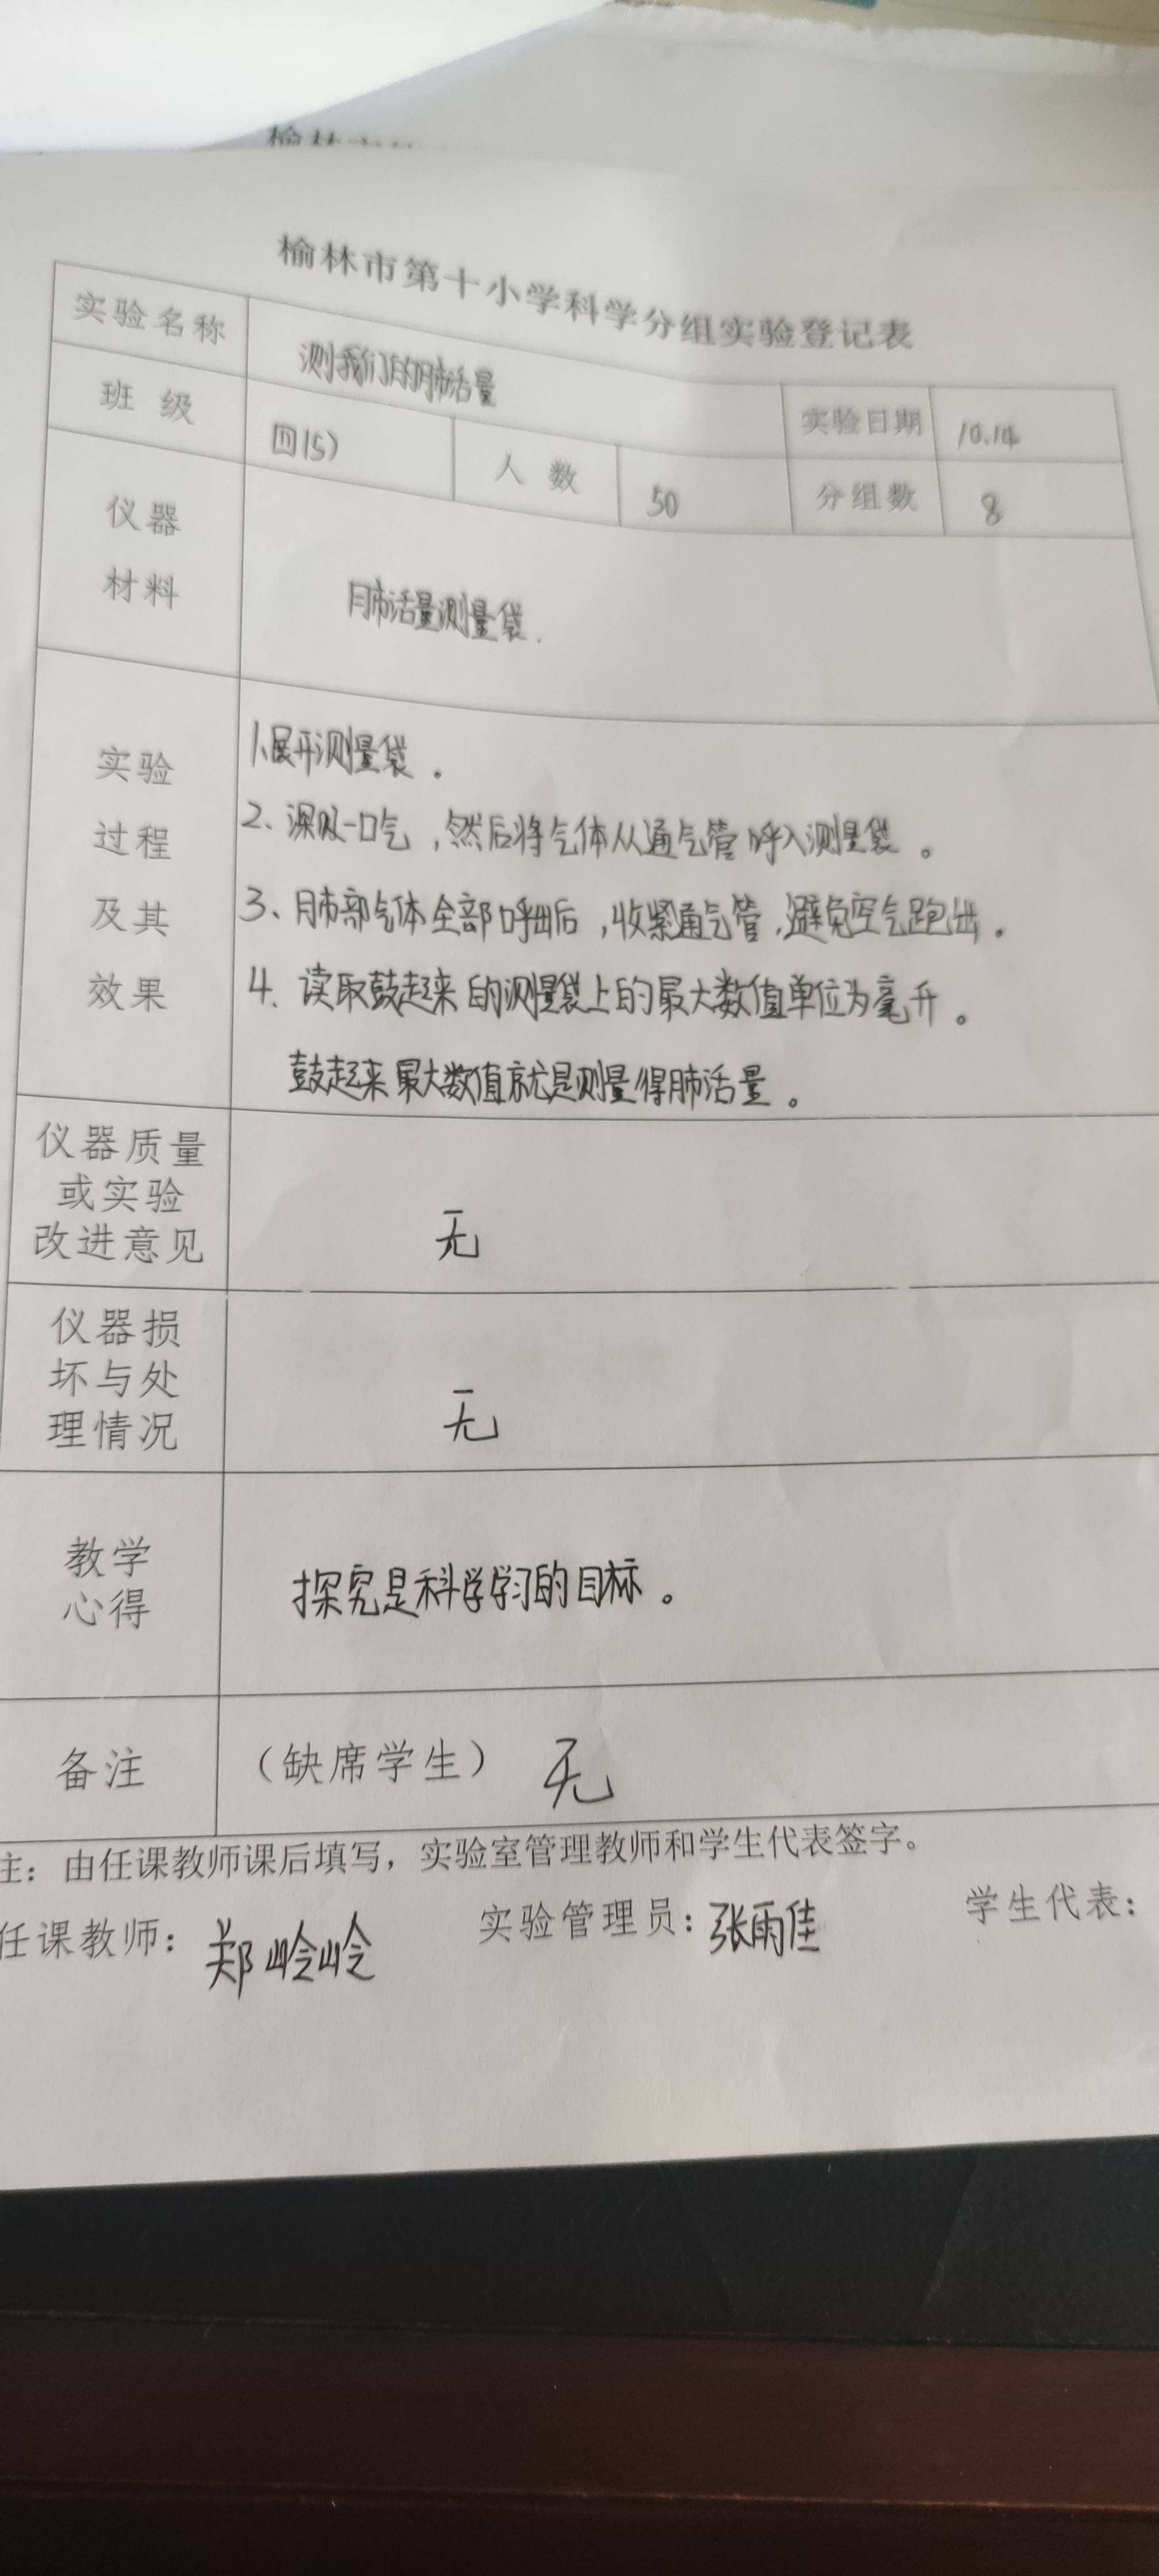 榆林市第十小学科学分组实验登记表
实验名称 测我们的肺活量 实验日期 10.14
班 级 四(5) 人 数 50 分组数 8
仪器
材料
肺活量测量袋.
实验
过程
及其
效果
1、展开测量袋。
2、深吸一口气，然后将气体从通气管呼入测量袋。
3、肺部气体全部呼出后，收紧通气管，避免空气跑出。
4. 读取鼓起来的测量袋上的最大数值单位为毫升。
鼓起来最大数值就是测量得肺活量。
仪器质量
或实验
改进意见
无
仪器损
坏与处
理情况
无
教学
心得
探究是科学学习的目标。
备注 （缺席学生） 无
注：由任课教师课后填写，实验室管理教师和学生代表签字。
任课教师：郑岭岭 实验管理员：张雨佳 学生代表：